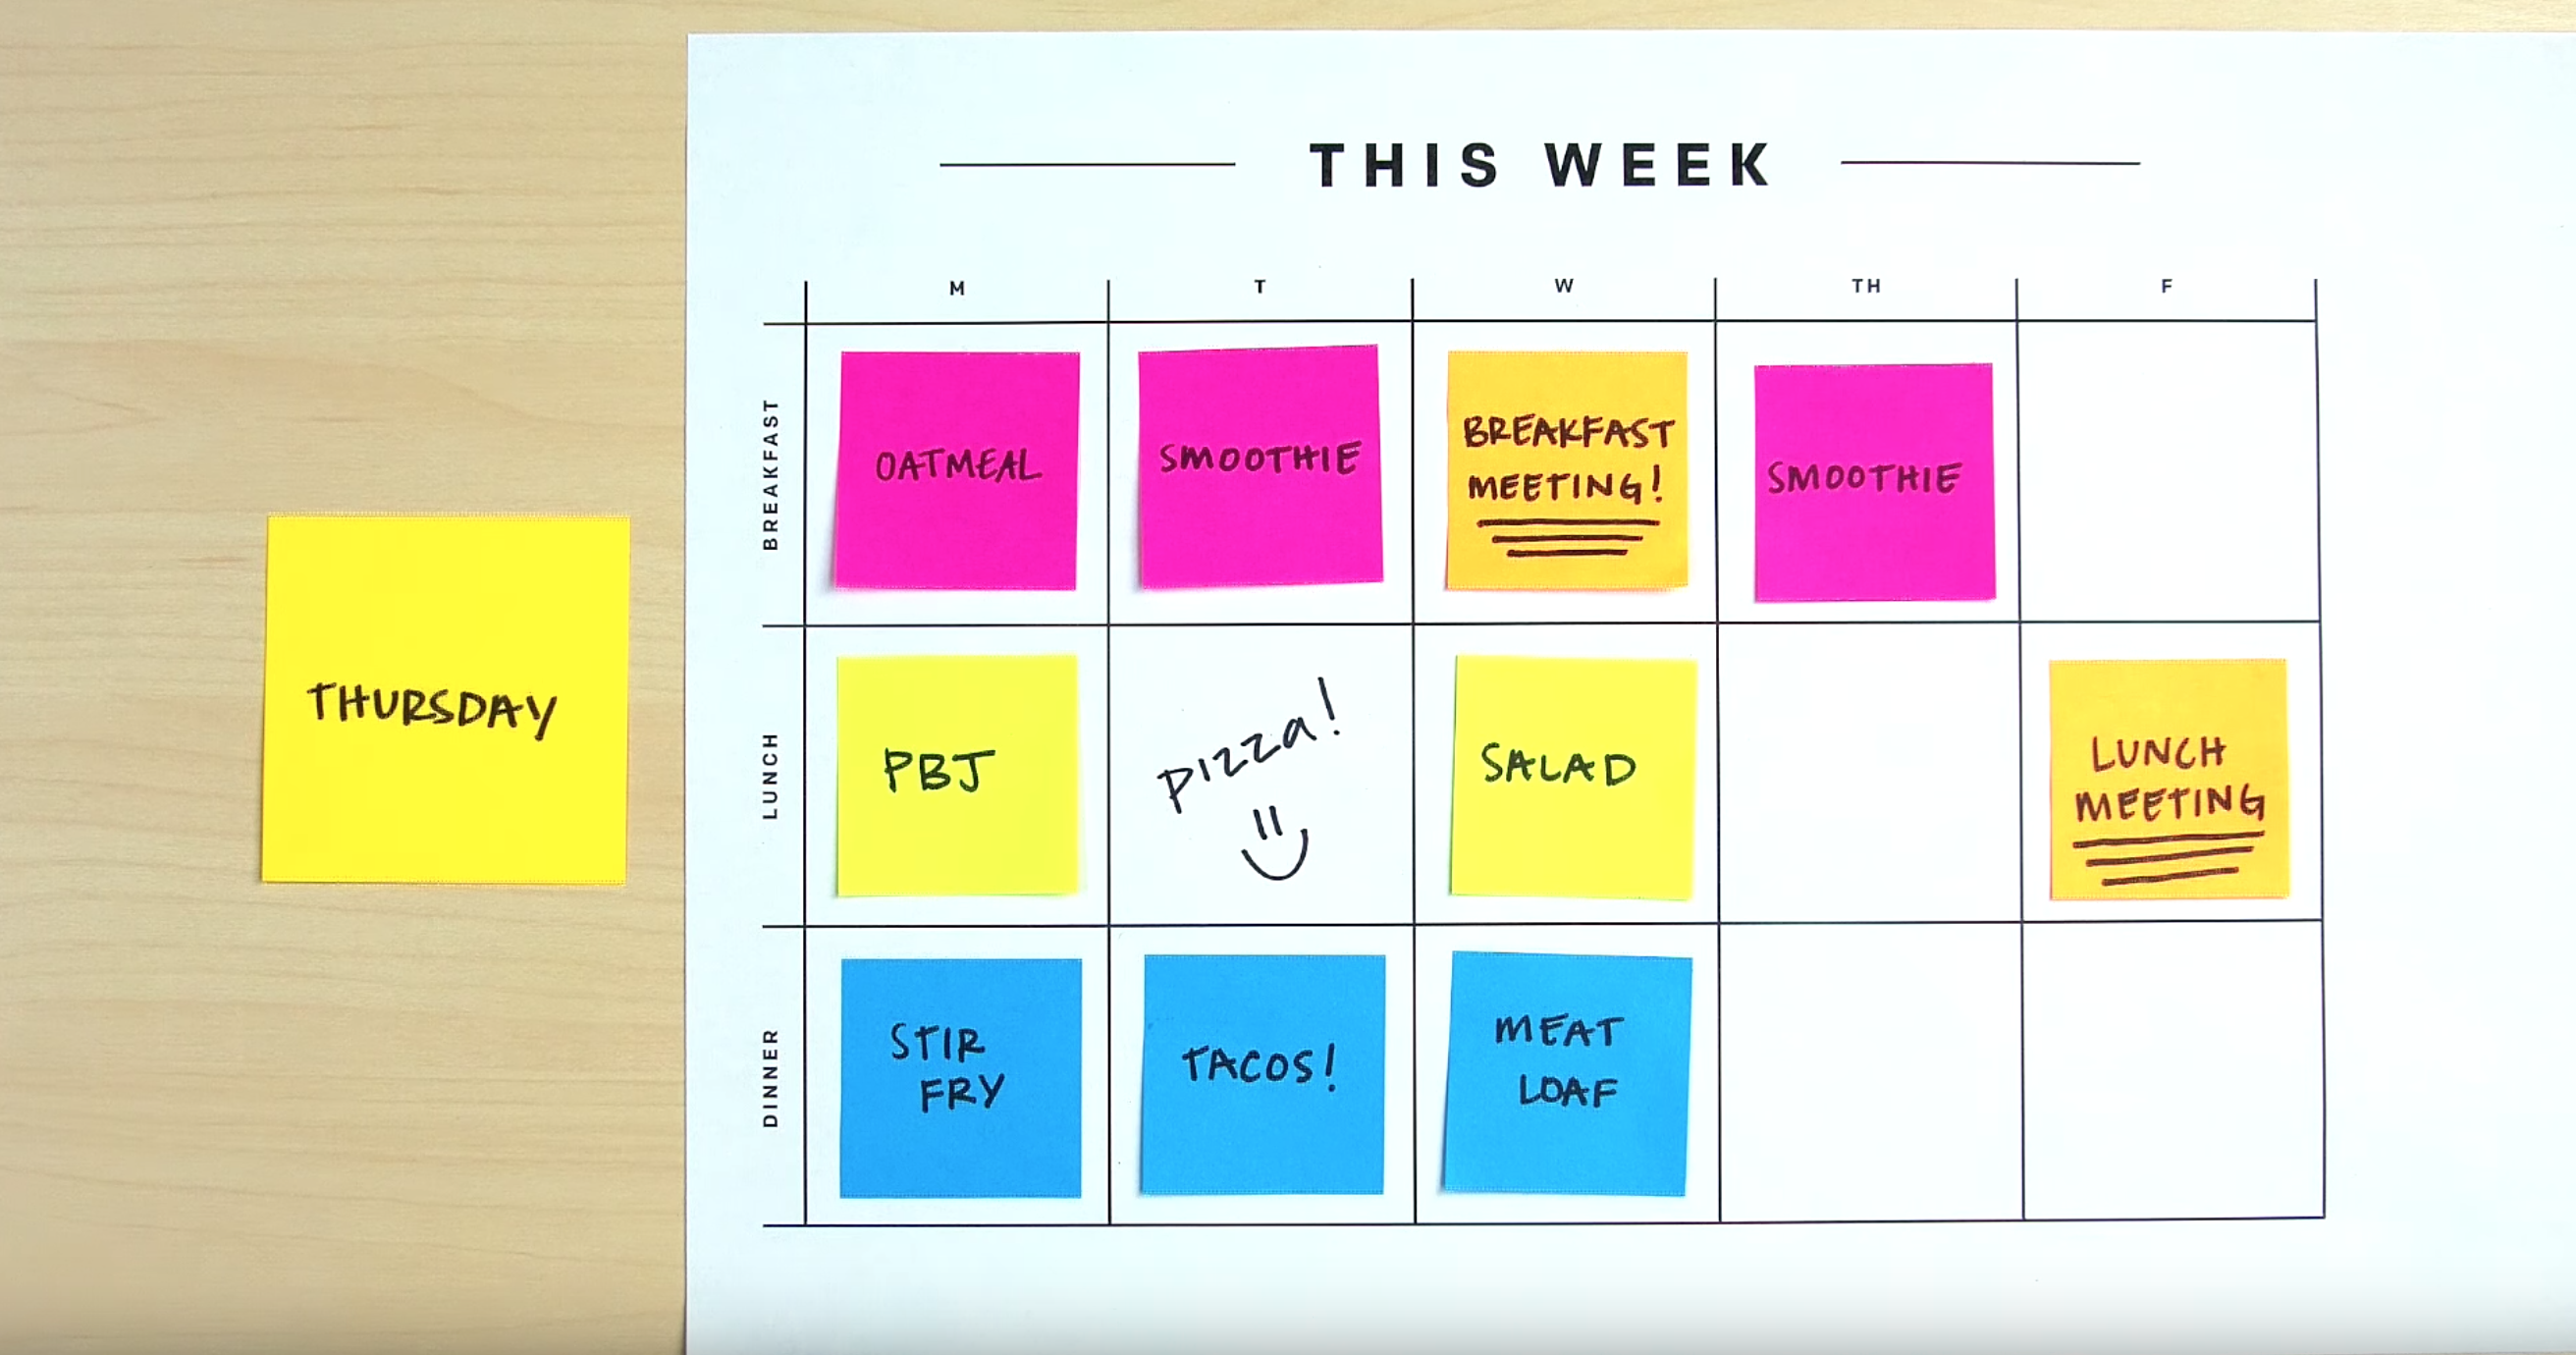 THIS WEEK
M T W TH F
BREAKFAST
OATMEAL
SMOOTHIE
BREAKFAST
MEETING!
SMOOTHIE
THURSDAY
LUNCH
PBJ
pizza!
SALAD
LUNCH
MEETING
DINNER
STIR
FRY
TACOS!
MEAT
LOAF